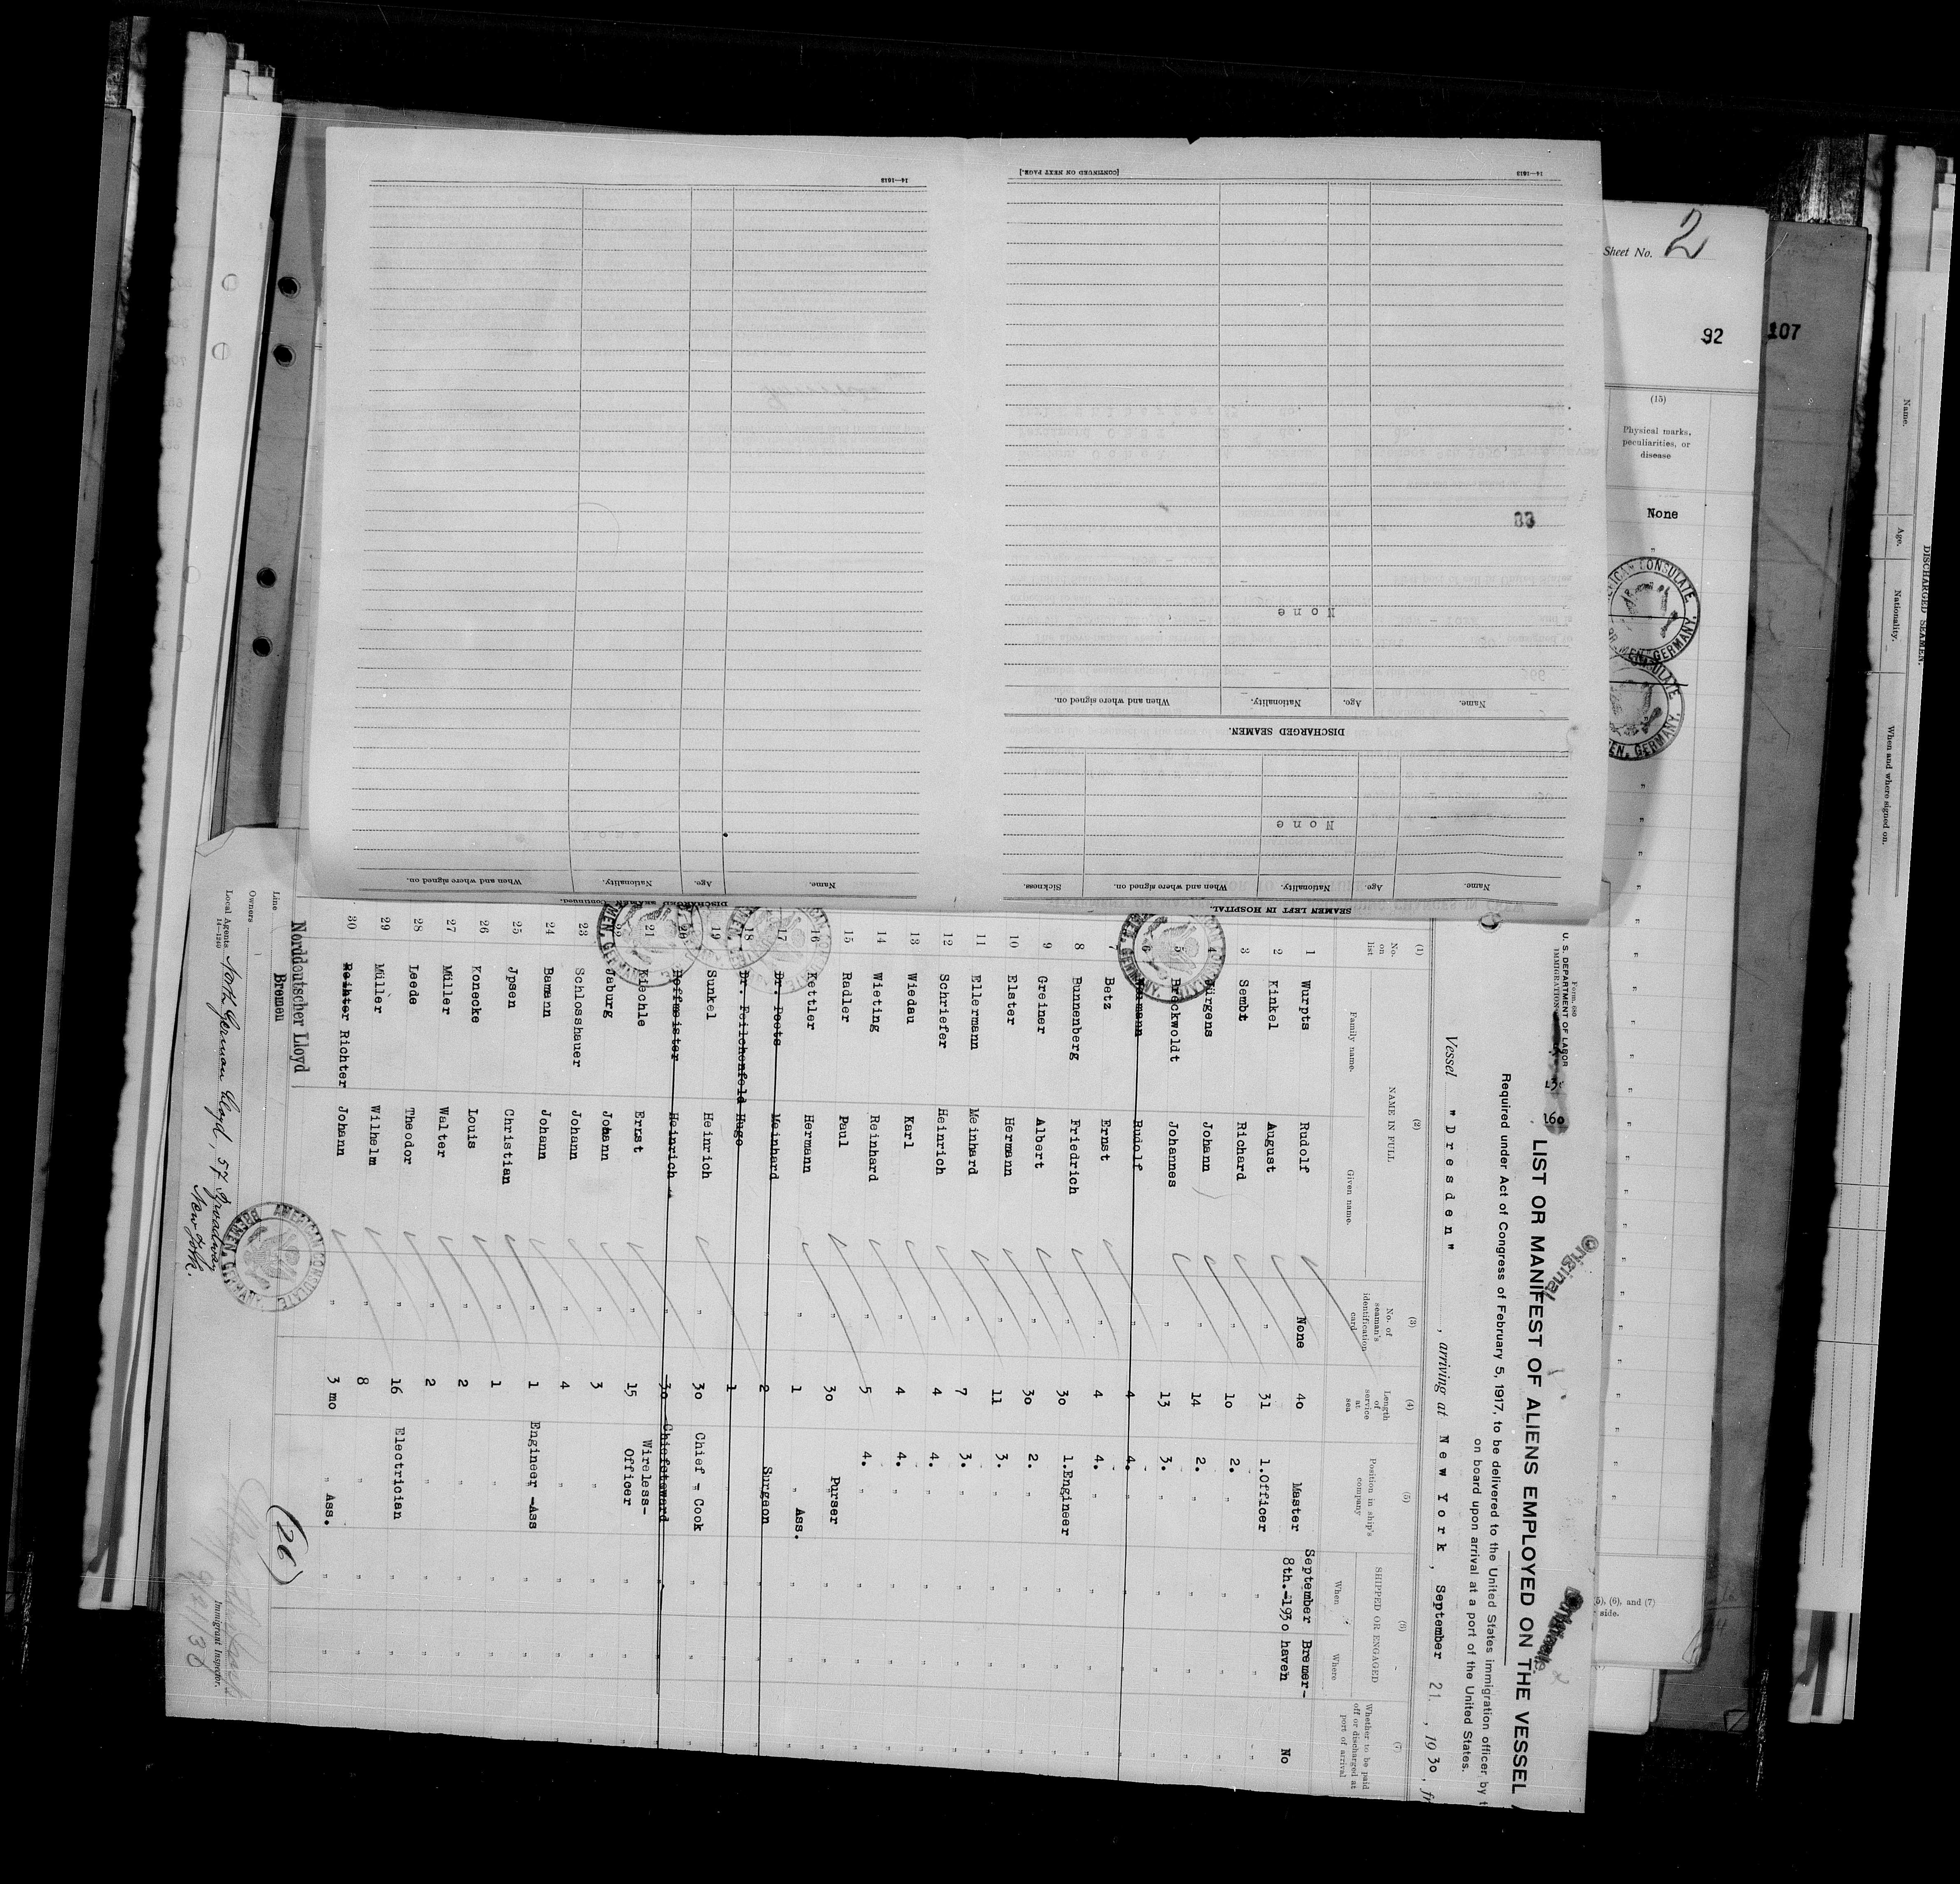 Form 680
U. S. DEPARTMENT OF LABOR
IMMIGRATION
Original
LIST OR MANIFEST OF ALIENS EMPLOYED ON THE VESSEL
Required under Act of Congress of February 5, 1917, to be delivered to the United States immigration officer by
on board upon arrival at a port of the United States.
Vessel "Dresden", arriving at New York, September 21, 1930, fr
(1) No. on list
(2) NAME IN FULL
Family name. Given name.
(3) No. of seaman's identification card
(4) Length of service at sea
(5) Position in ship's company
(6) SHIPPED OR ENGAGED
When Where
(7) Whether to be paid off or discharged at port of arrival
1 Wurpts Rudolf None 40 Master September 8th.-1930 Bremerhaven No
2 Kinkel August " 31 1.Officer " " "
3 Sembt Richard " 10 2. " " " "
4 Jürgens Johann " 14 2. " " " "
5 Breckwoldt Johannes " 13 3. " " " "
6 Rudolf " 4 4. " " " "
7 Betz Ernst " 4 4. " " " "
8 Bunnenberg Friedrich " 30 1.Engineer " " "
9 Greiner Albert " 30 2. " " " "
10 Elster Hermann " 11 3. " " " "
11 Ellermann Meinhard " 7 3. " " " "
12 Schriefer Heinrich " 4 4. " " " "
13 Wiedau Karl " 4 4. " " " "
14 Wieting Reinhard " 5 4. " " " "
15 Radler Paul " 30 Purser " " "
16 Kettler Hermann " 1 " Ass. " " "
17 Dr. Poets Meinhard " 2 Surgeon " " "
18 Dr. Feilchenfeld Hugo 1
19 Sunkel Heinrich " 30 Chief - Cook " " "
20 Hoffmeister Heinrich " 30 Chiefsteward " " "
21 Kiechle Ernst " 15 Wireless-Officer " " "
22 Jaburg Johann " 3 " " " "
23 Schlosshauer Johann " 4 " " " "
24 Bamann Johann " 1 Engineer -Ass " " "
25 Jpsen Christian " 1 " " " "
26 Konecke Louis " 2 " " " "
27 Müller Walter " 2 " " " "
28 Leede Theodor " 16 Electrician " " "
29 Müller Wilhelm " 8 " " "
30 Richter Johann " 3 mo " Ass. " " "
Line Norddeutscher Lloyd
Bremen
Owners
Local Agents North German Lloyd, 57 Broadway
New York.
14—1240
(26)
9/21/30
Immigrant Inspector.
AMERICAN CONSULATE
BREMEN, GERMANY.
SEAMEN LEFT IN HOSPITAL.
Name. Age. Nationality. When and where signed on. Sickness.
None
DISCHARGED SEAMEN.
Name. Age. Nationality. When and where signed on.
None
83
14—1613
[CONTINUED ON NEXT PAGE.]
DISCHARGED SEAMEN—Continued.
Name. Age. Nationality. When and where signed on.
14—1613
Sheet No. 2
92
107
(15)
Physical marks, peculiarities, or disease
None
AMERICAN CONSULATE
BREMEN, GERMANY.
(5), (6), and (7)
side.
DISCHARGED SEAMEN.
Name. Age. Nationality. When and where signed on.